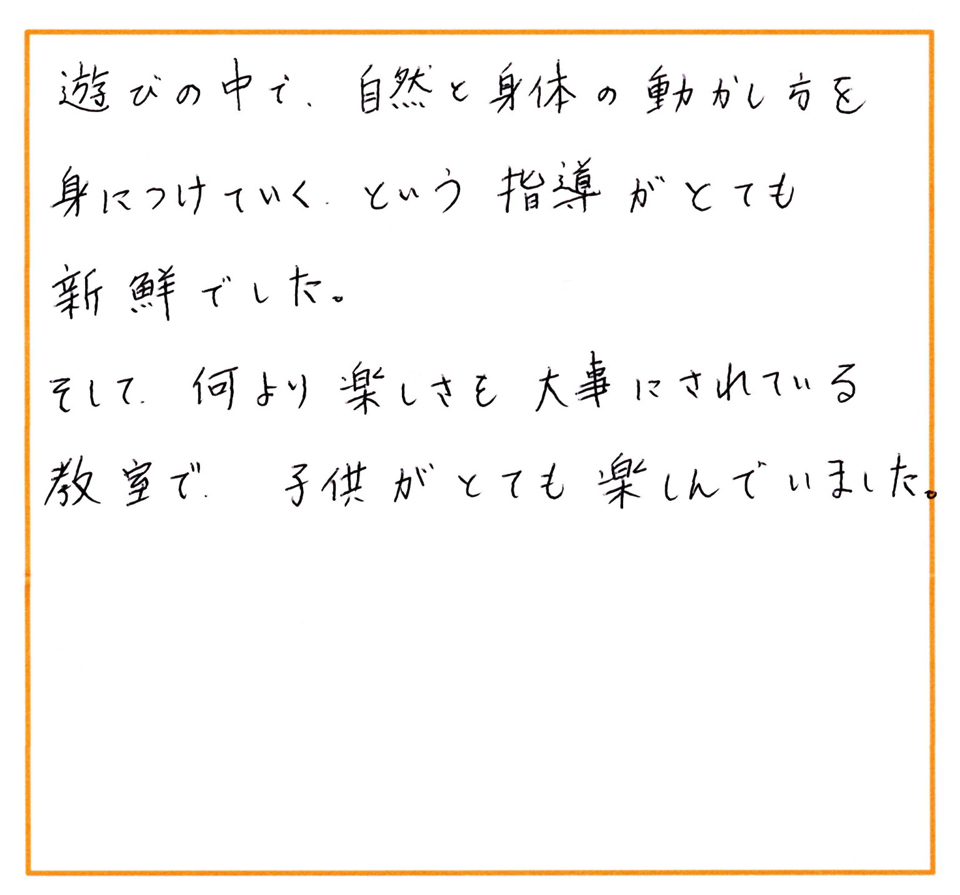 遊びの中で、自然と身体の動かし方を
身につけていく、という指導がとても
新鮮でした。
そして、何より楽しさを大事にされている
教室で、子供がとても楽しんでいました。